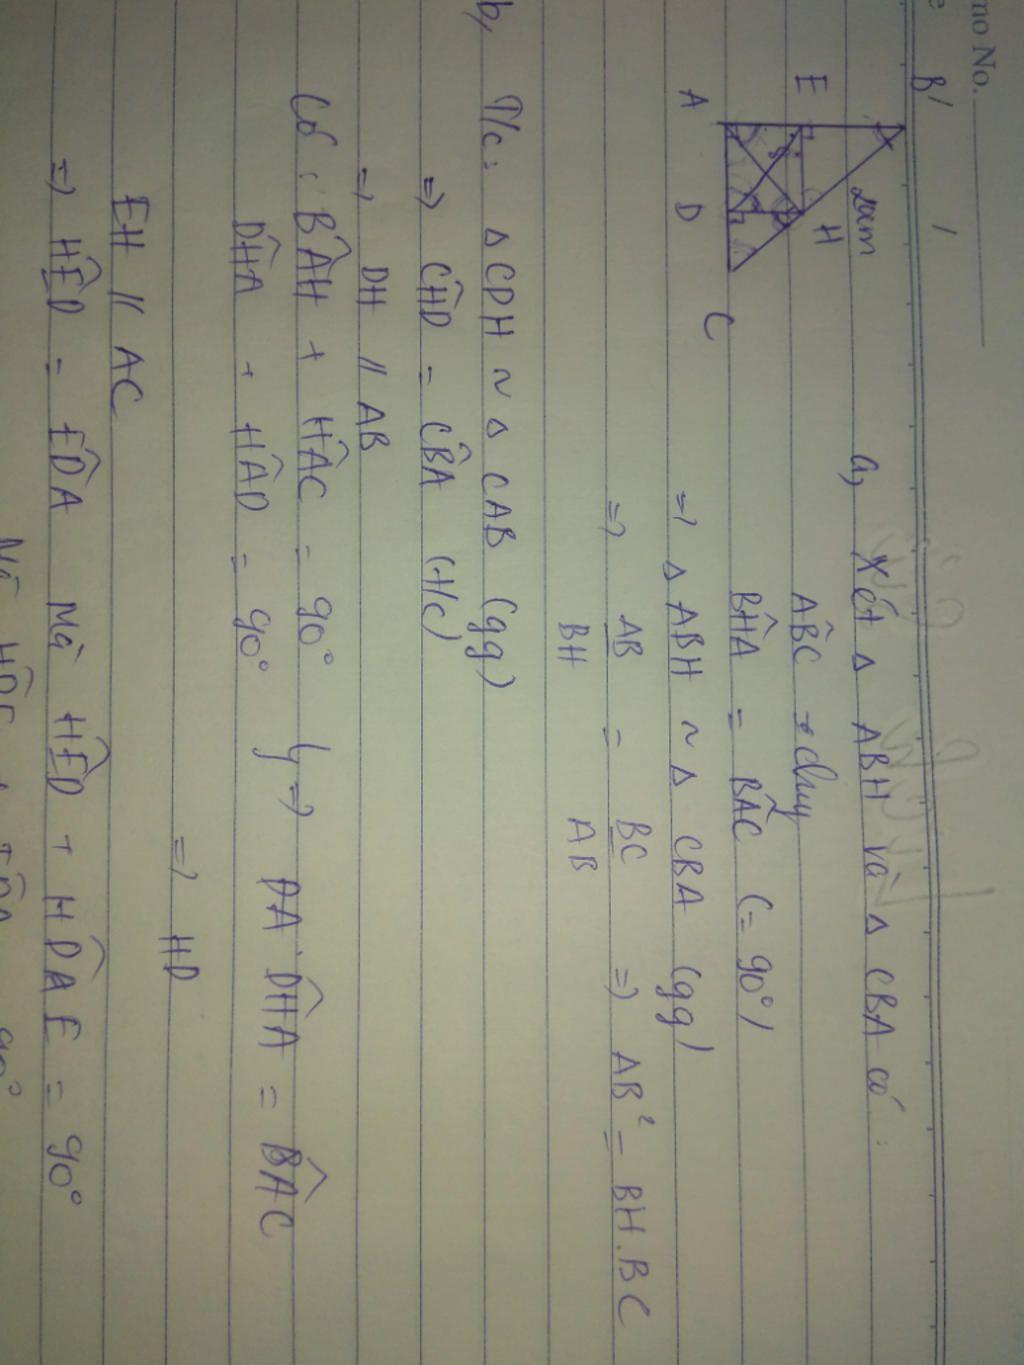 mo No.
B
E
A
D
H
C
2cm
a, Xét △ ABH và △ CBA có :
ABC chung
BHA = BAC (= 90°)
=> △ ABH ~ △ CBA (gg)
=> AB = BC => AB² = BH.BC
BH AB
b, T/c : △ CDH ~ △ CAB (gg)
=> CHD = CBA (t/c)
=> DH // AB
Có : BAH + HAC = 90°
DHA + HAD = 90° } => DHA = BAC
=> HD
EH // AC
=> HED = EDA Mà HED + HDAE = 90°
90°